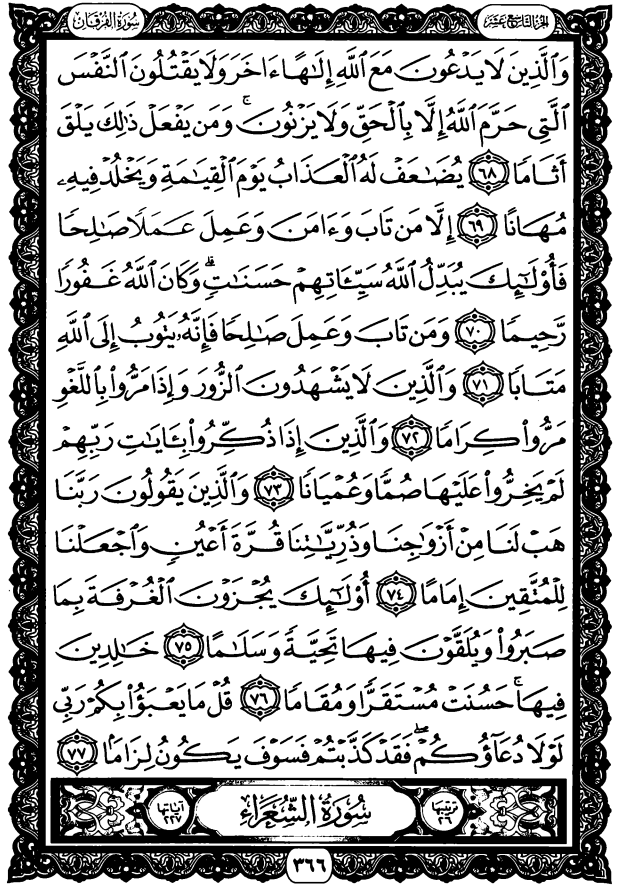 سُورَةُ الفُرْقَان
الجُزْءُ التَّاسِعَ عَشَر
وَٱلَّذِينَ لَا يَدْعُونَ مَعَ ٱللَّهِ إِلَٰهًا ءَاخَرَ وَلَا يَقْتُلُونَ ٱلنَّفْسَ
ٱلَّتِى حَرَّمَ ٱللَّهُ إِلَّا بِٱلْحَقِّ وَلَا يَزْنُونَ ۚ وَمَن يَفْعَلْ ذَٰلِكَ يَلْقَ
أَثَامًا ٦٨ يُضَٰعَفْ لَهُ ٱلْعَذَابُ يَوْمَ ٱلْقِيَٰمَةِ وَيَخْلُدْ فِيهِۦ
مُهَانًا ٦٩ إِلَّا مَن تَابَ وَءَامَنَ وَعَمِلَ عَمَلًا صَٰلِحًا
فَأُو۟لَٰٓئِكَ يُبَدِّلُ ٱللَّهُ سَيِّـَٔاتِهِمْ حَسَنَٰتٍ ۗ وَكَانَ ٱللَّهُ غَفُورًا
رَّحِيمًا ٧٠ وَمَن تَابَ وَعَمِلَ صَٰلِحًا فَإِنَّهُۥ يَتُوبُ إِلَى ٱللَّهِ
مَتَابًا ٧١ وَٱلَّذِينَ لَا يَشْهَدُونَ ٱلزُّورَ وَإِذَا مَرُّوا۟ بِٱللَّغْوِ
مَرُّوا۟ كِرَامًا ٧٢ وَٱلَّذِينَ إِذَا ذُكِّرُوا۟ بِـَٔايَٰتِ رَبِّهِمْ
لَمْ يَخِرُّوا۟ عَلَيْهَا صُمًّا وَعُمْيَانًا ٧٣ وَٱلَّذِينَ يَقُولُونَ رَبَّنَا
هَبْ لَنَا مِنْ أَزْوَٰجِنَا وَذُرِّيَّٰتِنَا قُرَّةَ أَعْيُنٍ وَٱجْعَلْنَا
لِلْمُتَّقِينَ إِمَامًا ٧٤ أُو۟لَٰٓئِكَ يُجْزَوْنَ ٱلْغُرْفَةَ بِمَا
صَبَرُوا۟ وَيُلَقَّوْنَ فِيهَا تَحِيَّةً وَسَلَٰمًا ٧٥ خَٰلِدِينَ
فِيهَا ۚ حَسُنَتْ مُسْتَقَرًّا وَمُقَامًا ٧٦ قُلْ مَا يَعْبَؤُا۟ بِكُمْ رَبِّى
لَوْلَا دُعَآؤُكُمْ ۖ فَقَدْ كَذَّبْتُمْ فَسَوْفَ يَكُونُ لِزَامًۢا ٧٧
ترتيبها ٢٦ سُورَةُ الشُّعَرَاءِ آياتها ٢٢٧
٣٦٦